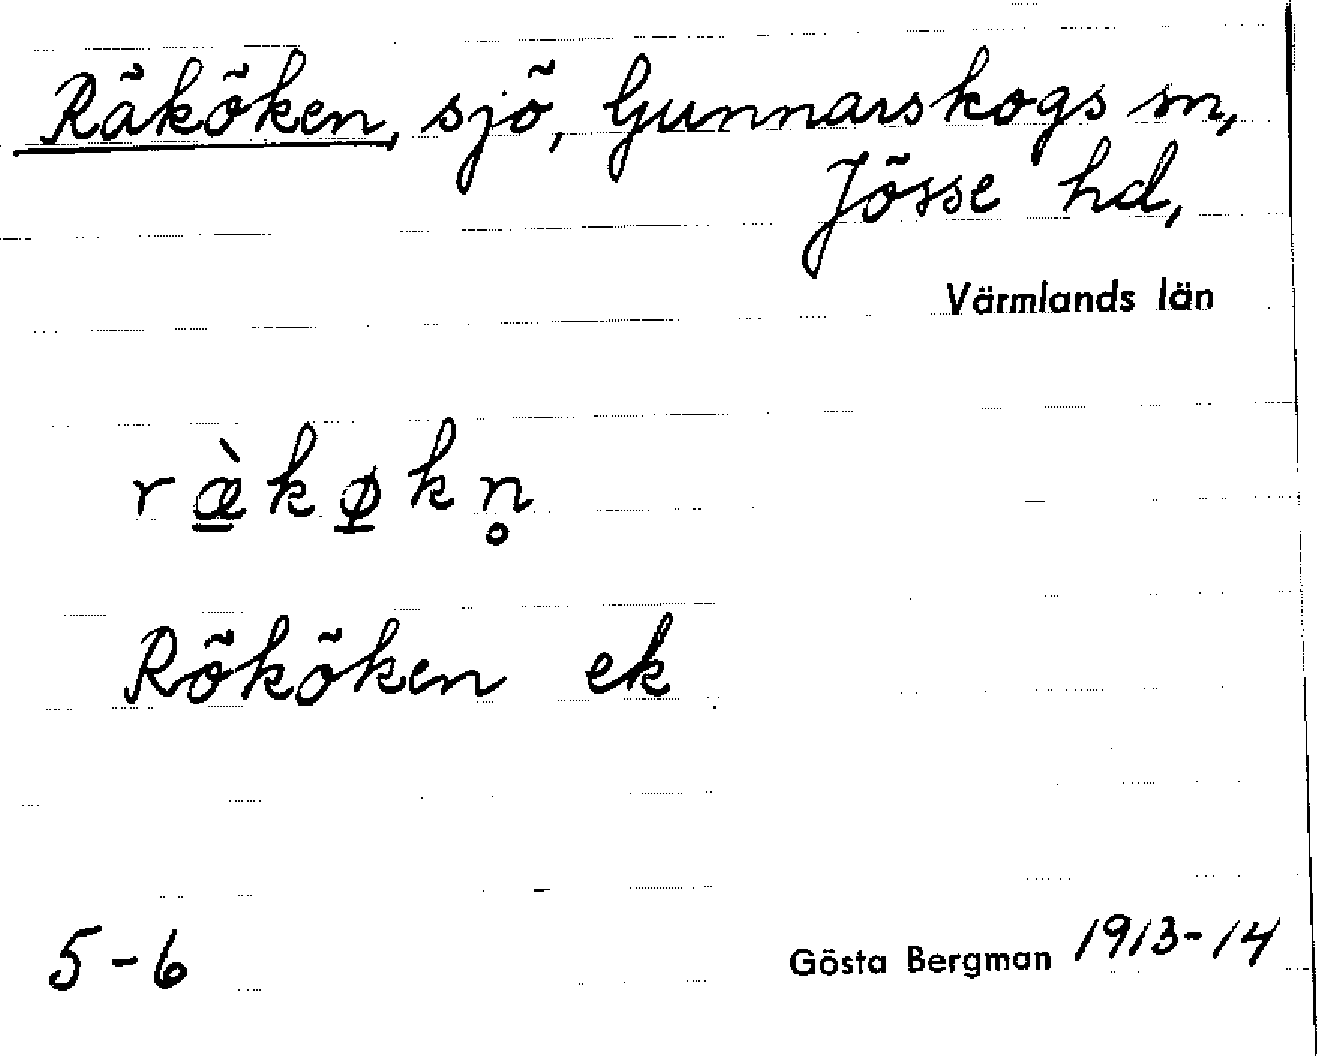 Räköken, sjö, Gunnarskogs sn,
Jösse hd,
Värmlands län
ræ̲̀kø̲kn̥
Rököken ek
5-6
Gösta Bergman 1913-14